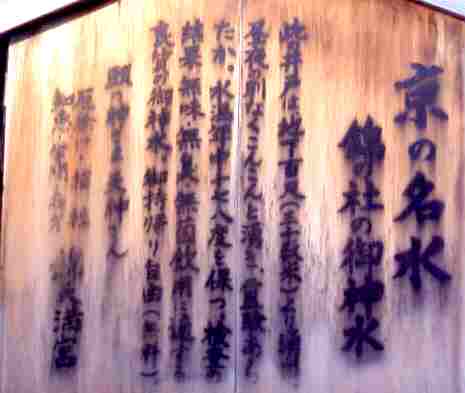 京の名水
錦の社の御神水
此井戸は地下百尺（三十数米）より湧出
昼夜の別なくこんこんと湧き、霊験あら
たか。水温年中十七八度を保つ検査の
結果無味・無臭・無菌飲用に適する
良質の御神水。御持帰り自由（無料）
願の神さま天神さん
満宮